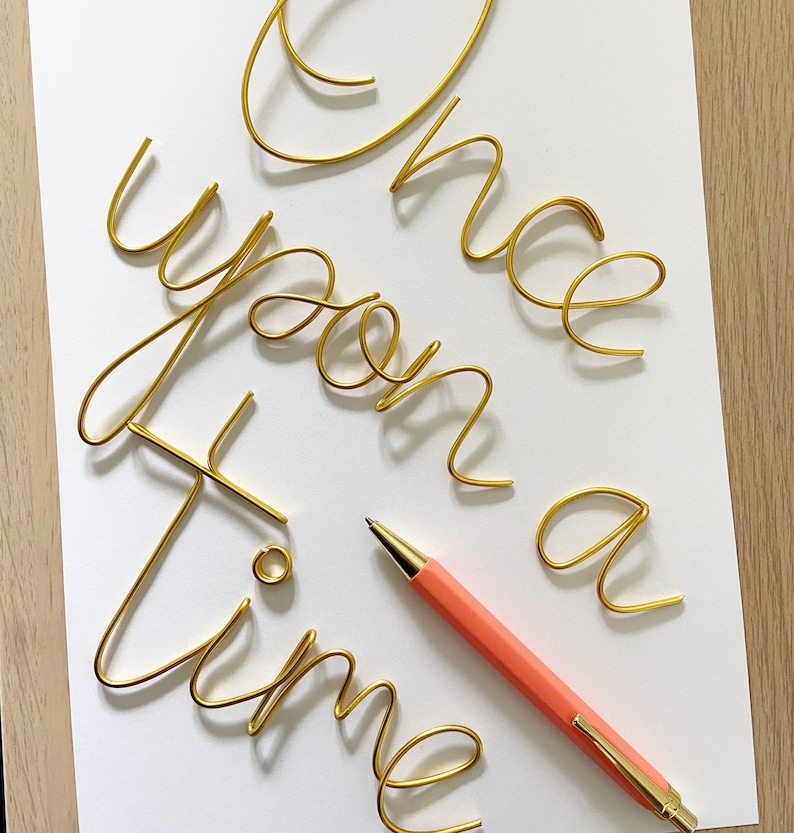 Once
upon a
time